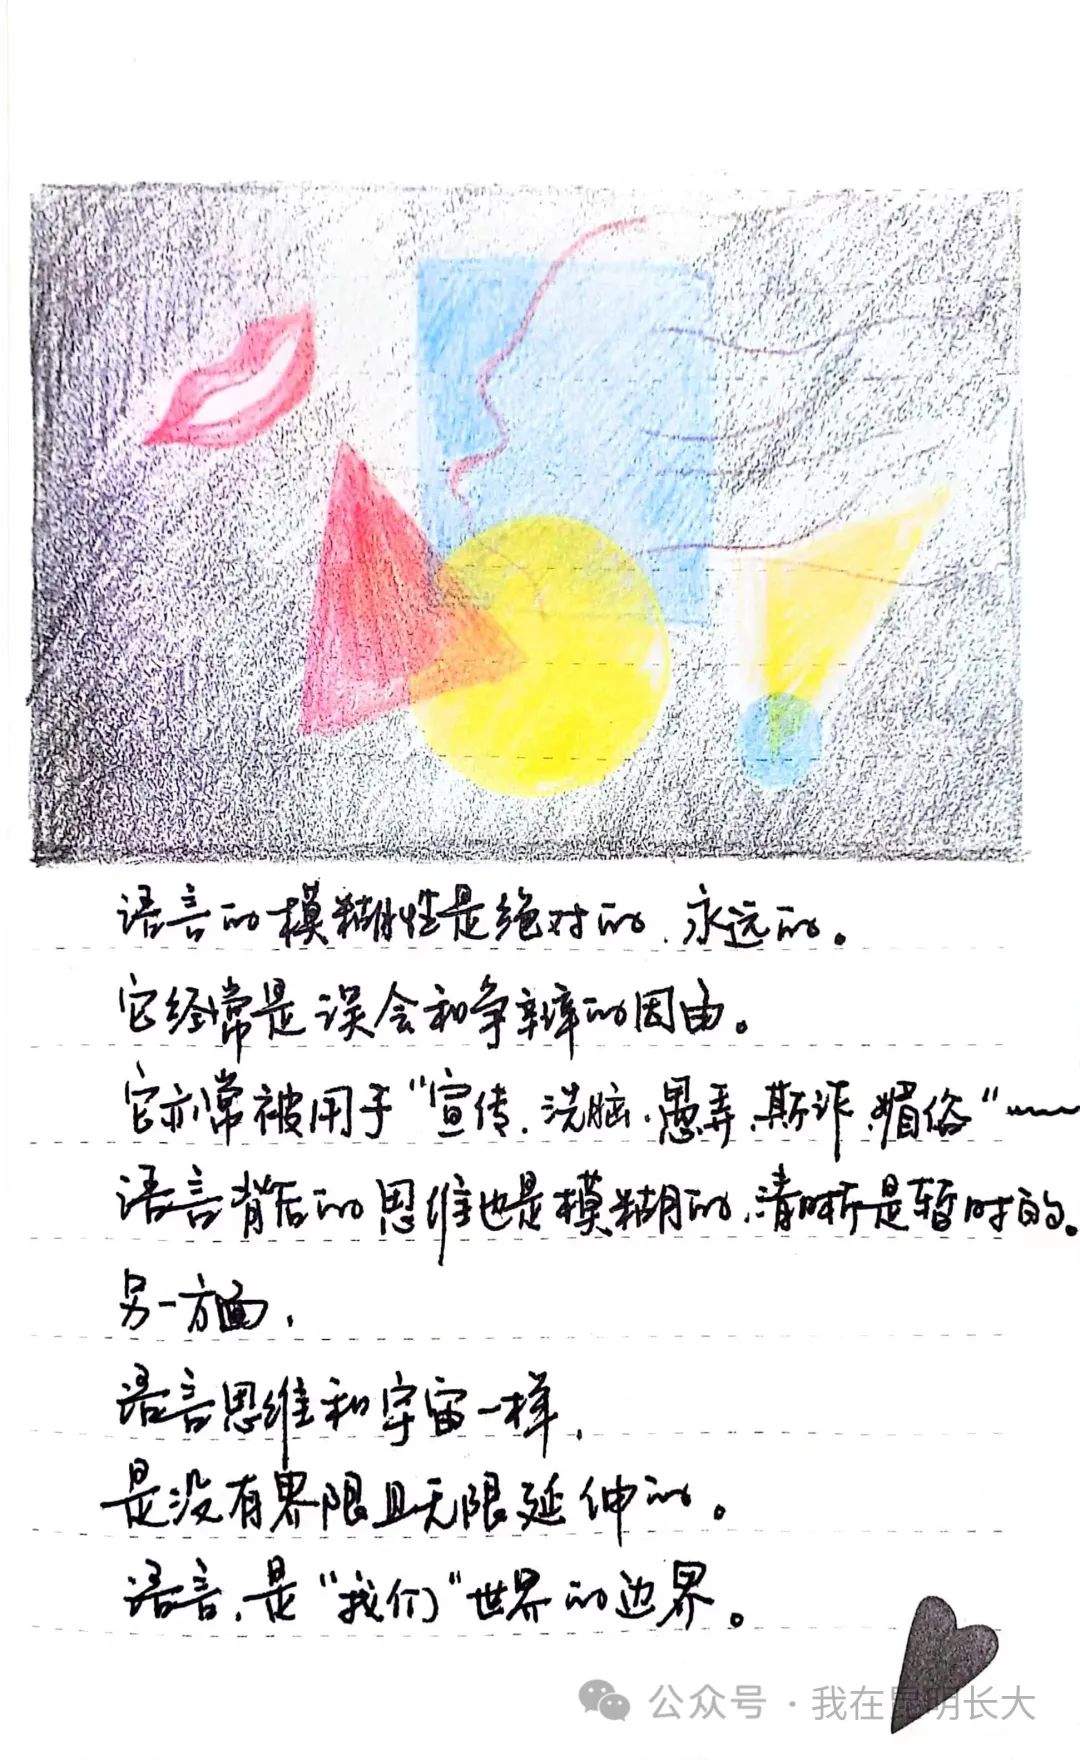 语言的模糊性是绝对的、永远的。
它经常是误会和争辩的因由。
它亦常被用于“宣传、洗脑、愚弄、斯诈、媚俗”……
语言背后的思维也是模糊的，清晰是暂时的。
另一方面，
语言思维和宇宙一样，
是没有界限且无限延伸的。
语言，是“我们”世界的边界。
公众号·我在昆明长大